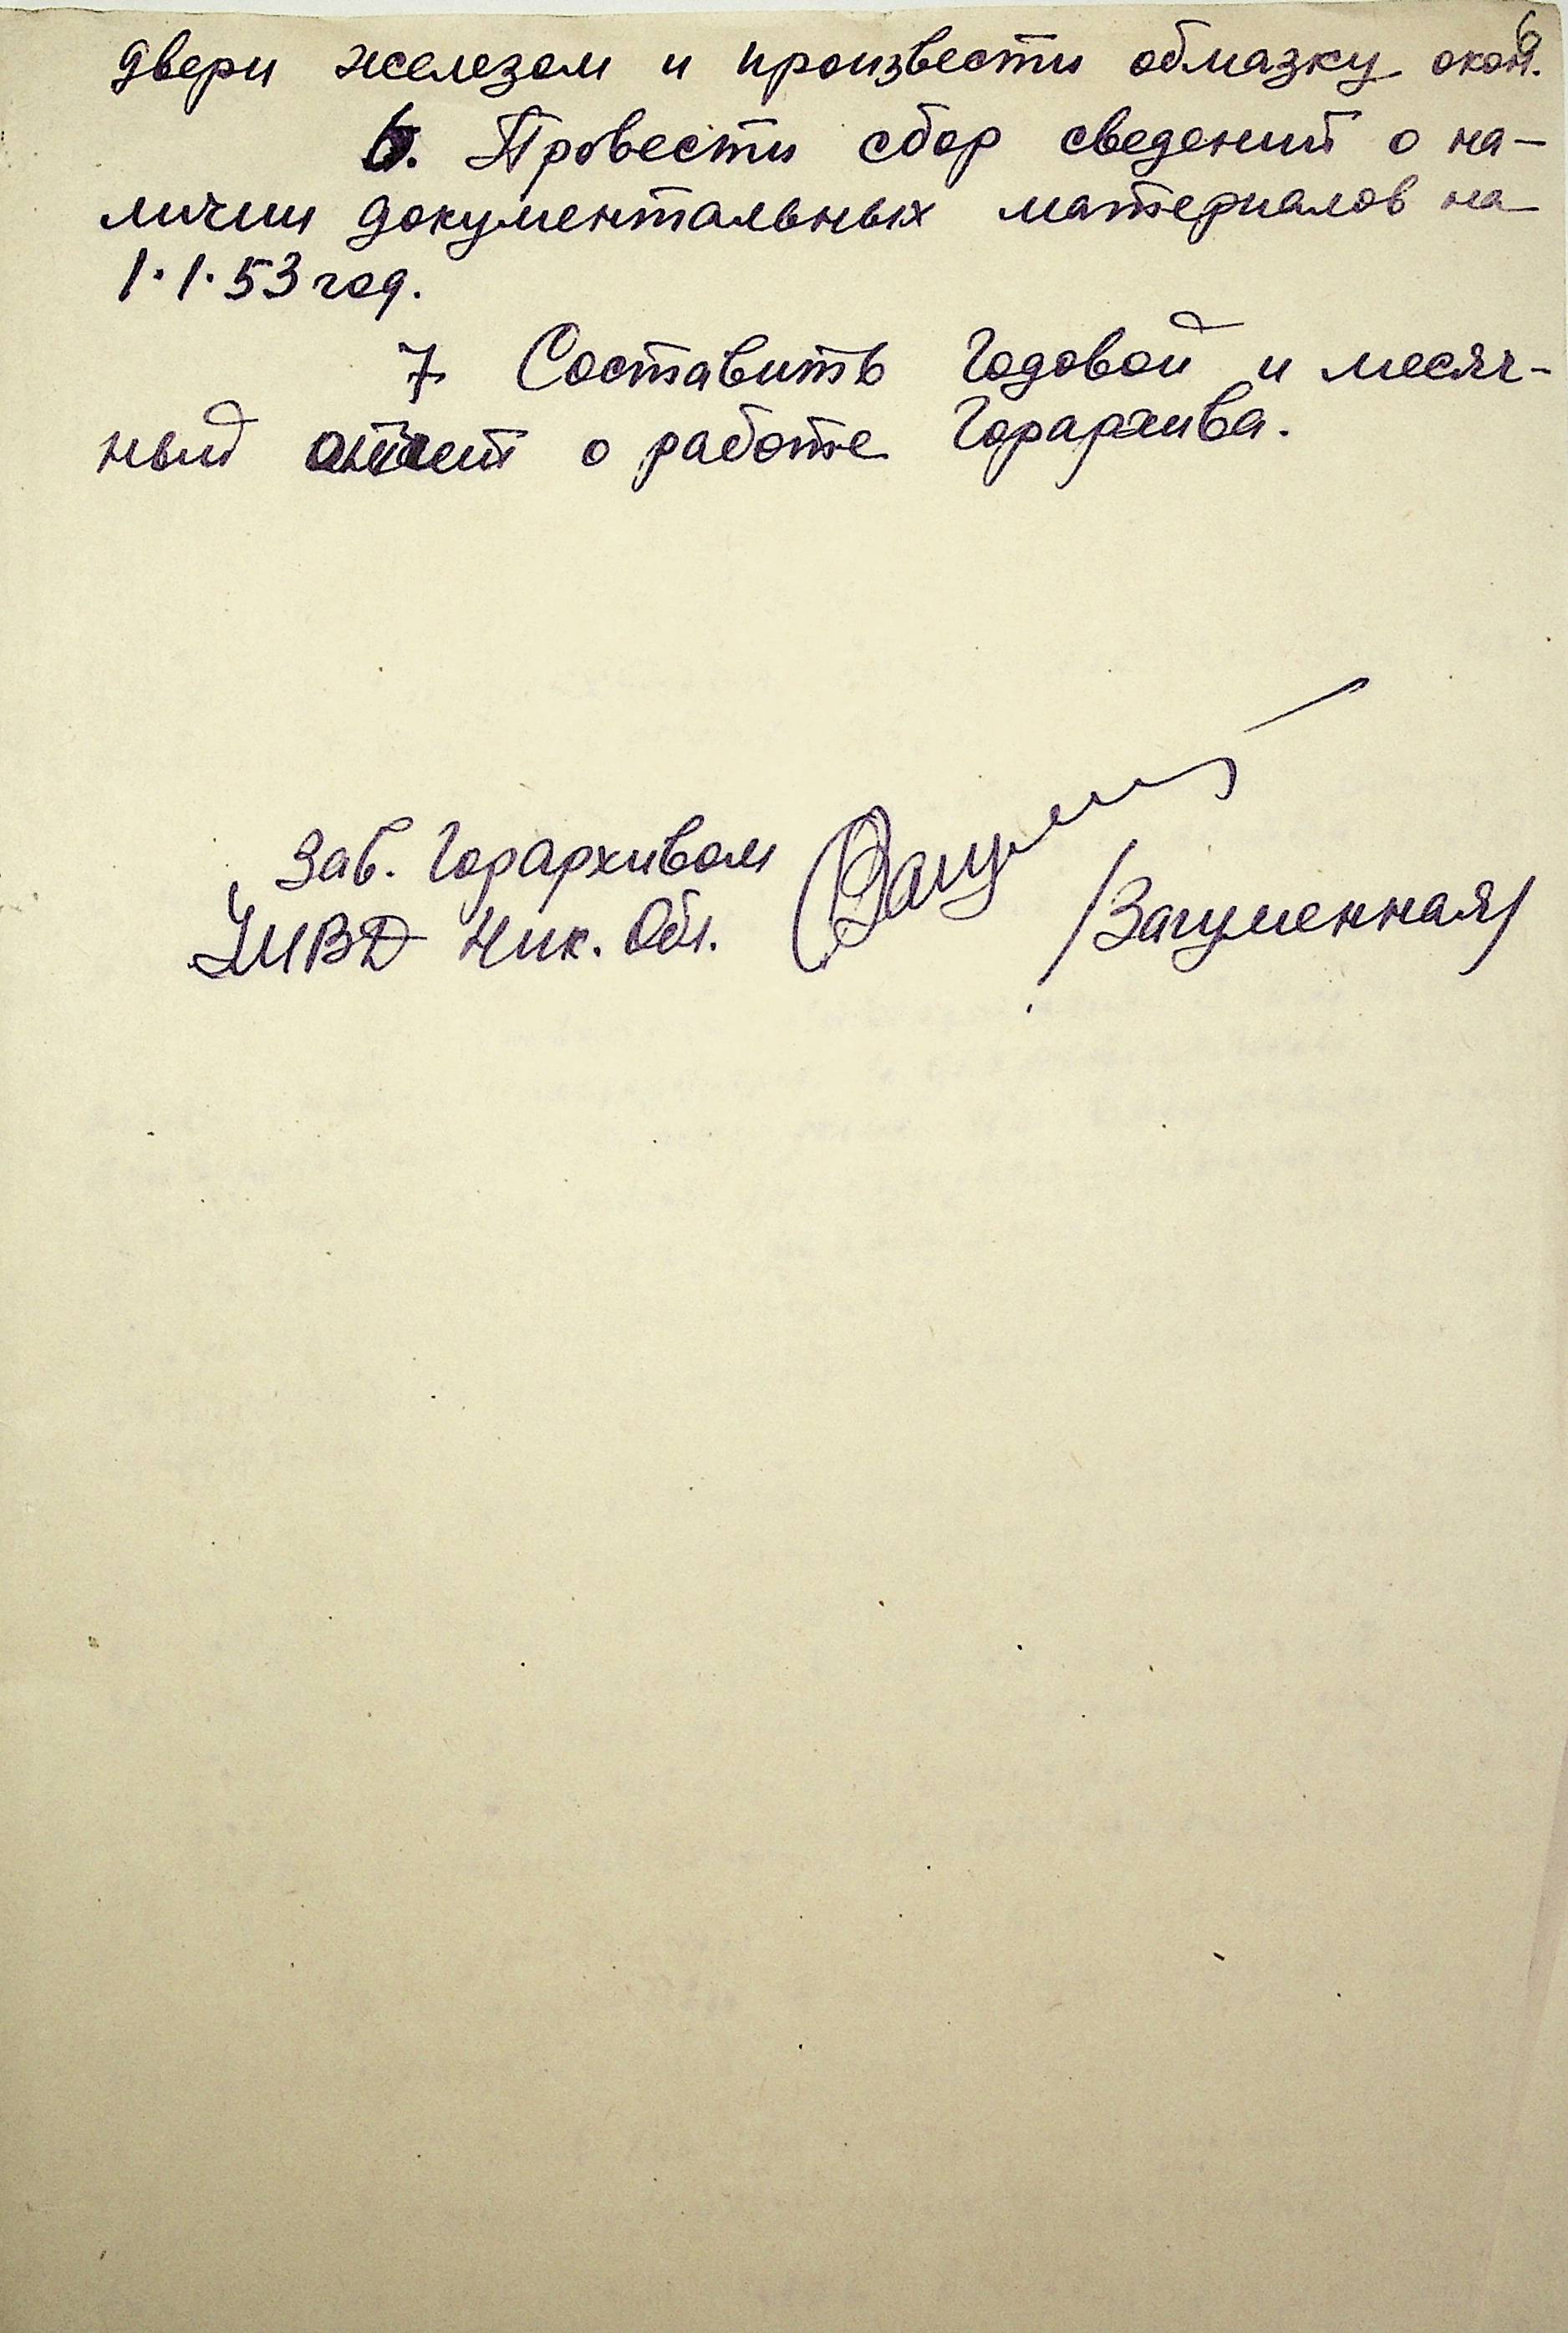 6
двери железом и произвести обмазку окон.
6. Провести сбор сведений о на-
личии документальных материалов на
1.1.53 год.
7 Составить Годовой и месяч-
ный отчет о работе Горархива.
Зав. Горархивом
УМВД Ник. Обл.
/Загуменная/